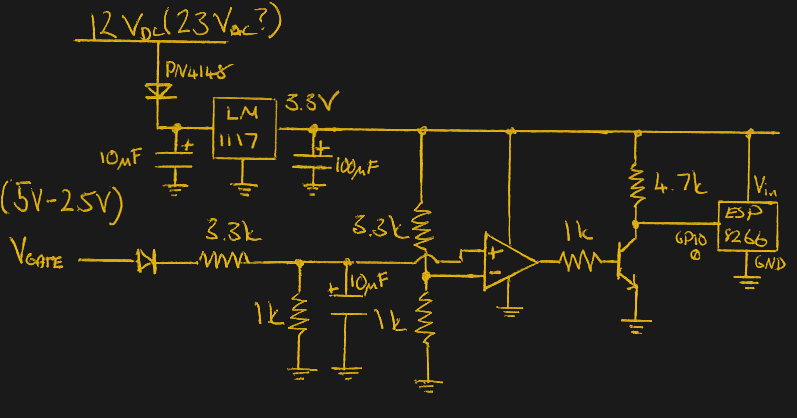 12 VDC (23 VAC?)
PN4148
LM
1117
3.3V
10µF
100µF
(5V-25V)
VGATE
3.3k
3.3k
4.7k
Vin
ESP
8266
GPIO
0
GND
1k
10µF
1k
1k
+
-
+
+
+